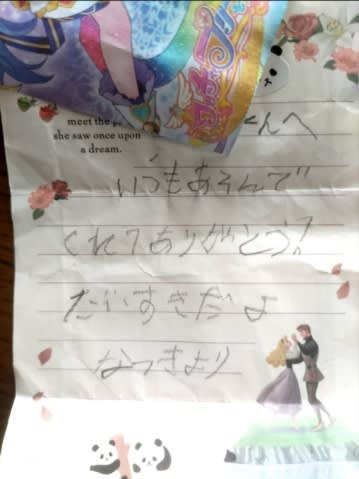 meet the
she saw once upon
a dream.
くんへ
いつもあそんで
くれてありがとう!
だいすきだよ
なつきより